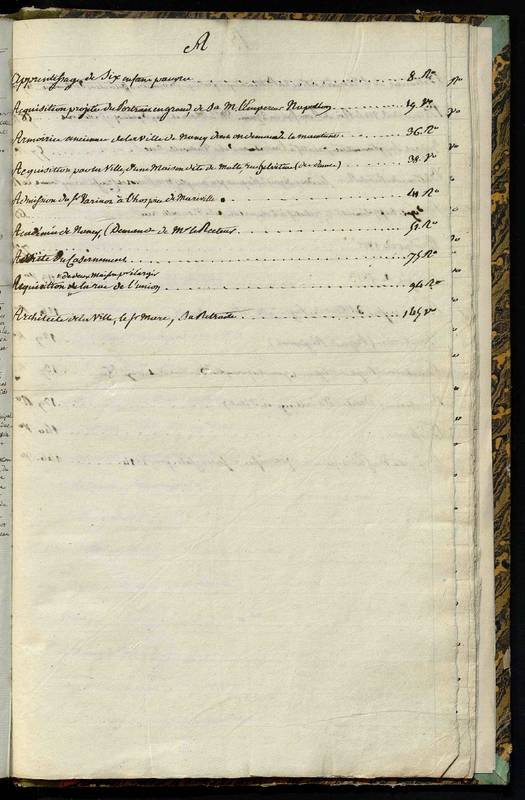 A
Apprentissage de Six enfans pauvres ........ 8. Ro
Acquisition projetée du Portrait en grand, de Sa M. l'Empereur Napoléon ........ 19. Vo
Armoiries anciennes de la Ville de Nancy dont on demande le maintien ........ 36. Ro
Acquisition par la Ville d'une Maison dite de ........ 38. Vo
Admission du Sr Parinot à l'hospice de Mareville ........ 41 Ro
Académie de Nancy, (Demande de Mr le Recteur ........ 51. Ro
du Casernement ........ 75 Ro
de deux Maisons pr élargir
Acquisition de la rue de l'union ........ 94 Ro
Architecte de la Ville, le Sr Mare, Sa Retraite ........ 145 Vo